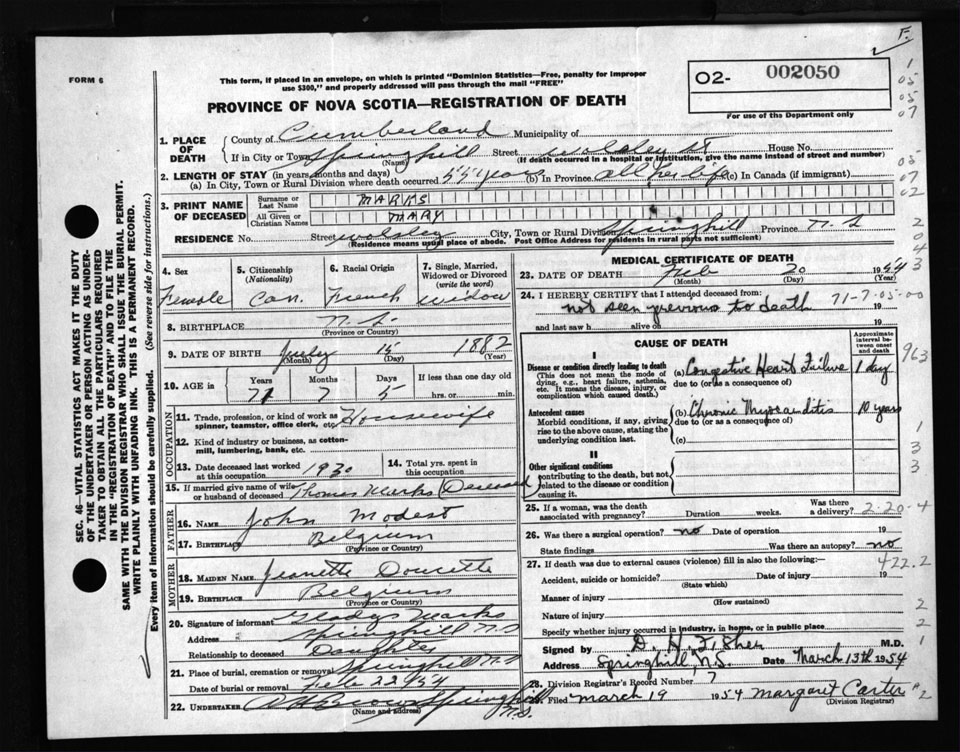 F.
FORM 6
This form, if placed in an envelope, on which is printed "Dominion Statistics—Free, penalty for improper
use $300," and properly addressed will pass through the mail "FREE"
O2- 002050
For use of the Department only
PROVINCE OF NOVA SCOTIA—REGISTRATION OF DEATH
1. PLACE OF DEATH
County of Cumberland Municipality of
If in City or Town Springhill Street Wolsley St House No.
(Name) (If death occurred in a hospital or institution, give the name instead of street and number)
2. LENGTH OF STAY (in years, months and days)
(a) In City, Town or Rural Division where death occurred 55 years (b) In Province all her life (c) In Canada (if immigrant)
3. PRINT NAME OF DECEASED
Surname or Last Name MARKS
All Given or Christian Names MARY
RESIDENCE No. Street Wolsley City, Town or Rural Division Springhill Province N.S
(Residence means usual place of abode. Post Office Address for residents in rural parts not sufficient)
4. Sex Female
5. Citizenship (Nationality) Can.
6. Racial Origin French
7. Single, Married, Widowed or Divorced (write the word) widow
8. BIRTHPLACE N.S.
(Province or Country)
9. DATE OF BIRTH July 15 1882
(Month) (Day) (Year)
10. AGE in Years 71 Months 7 Days 5 If less than one day old
hrs. or min.
OCCUPATION
11. Trade, profession, or kind of work as spinner, teamster, office clerk, etc. Housewife
12. Kind of industry or business, as cotton-mill, lumbering, bank, etc.
13. Date deceased last worked at this occupation 1930
14. Total yrs. spent in this occupation
15. If married give name of wife or husband of deceased Thomas Marks (Deceased)
FATHER
16. NAME John Modest
17. BIRTHPLACE Belgium
(Province or Country)
MOTHER
18. MAIDEN NAME Jeanette Doucette
19. BIRTHPLACE Belgium
(Province or Country)
20. Signature of informant Gladys Marks
Address Springhill N.S
Relationship to deceased Daughter
21. Place of burial, cremation or removal Springhill N.S
Date of burial or removal Feb 22/54
22. UNDERTAKER Brown Springhill N.S.
(Name and address)
MEDICAL CERTIFICATE OF DEATH
23. DATE OF DEATH Feb 20 1954
(Month) (Day) (Year)
24. I HEREBY CERTIFY that I attended deceased from: 71-7-05-00
not seen previous to death 19
and last saw h alive on 19
CAUSE OF DEATH
Approximate interval between onset and death
I
Disease or condition directly leading to death
(This does not mean the mode of dying, e.g., heart failure, asthenia, etc. It means the disease, injury, or complication which caused death.)
(a) Congestive Heart Failure 1 day
due to (or as a consequence of)
Antecedent causes
Morbid conditions, if any, giving rise to the above cause, stating the underlying condition last.
(b) Chronic Myocarditis 10 years
due to (or as a consequence of)
(c)
II
Other significant conditions
contributing to the death, but not related to the disease or condition causing it.
25. If a woman, was the death associated with pregnancy? Duration weeks. Was there a delivery? 2-20-4
26. Was there a surgical operation? no Date of operation 19
State findings Was there an autopsy? no
27. If death was due to external causes (violence) fill in also the following:— 422.2
Accident, suicide or homicide? Date of injury 19
(State which)
Manner of injury
(How sustained)
Nature of injury
Specify whether injury occurred in industry, in home, or in public place
Signed by M.D.
Address Springhill, N.S. Date March 13th 1954
28. Division Registrar's Record Number 7
29. Filed March 19 1954 Margaret Carter
(Division Registrar)
SEC. 46—VITAL STATISTICS ACT MAKES IT THE DUTY
OF THE UNDERTAKER OR PERSON ACTING AS UNDER-
TAKER TO OBTAIN ALL THE PARTICULARS REQUIRED
IN THE "REGISTRATION OF DEATH" AND TO FILE THE
SAME WITH THE DIVISION REGISTRAR WHO SHALL ISSUE THE BURIAL PERMIT.
WRITE PLAINLY WITH UNFADING INK. THIS IS A PERMANENT RECORD.
Every item of information should be carefully supplied. (See reverse side for instructions.)
1
05
05
07
05
07
02
2
0
4
3
963
1
3
3
2
2
1
2